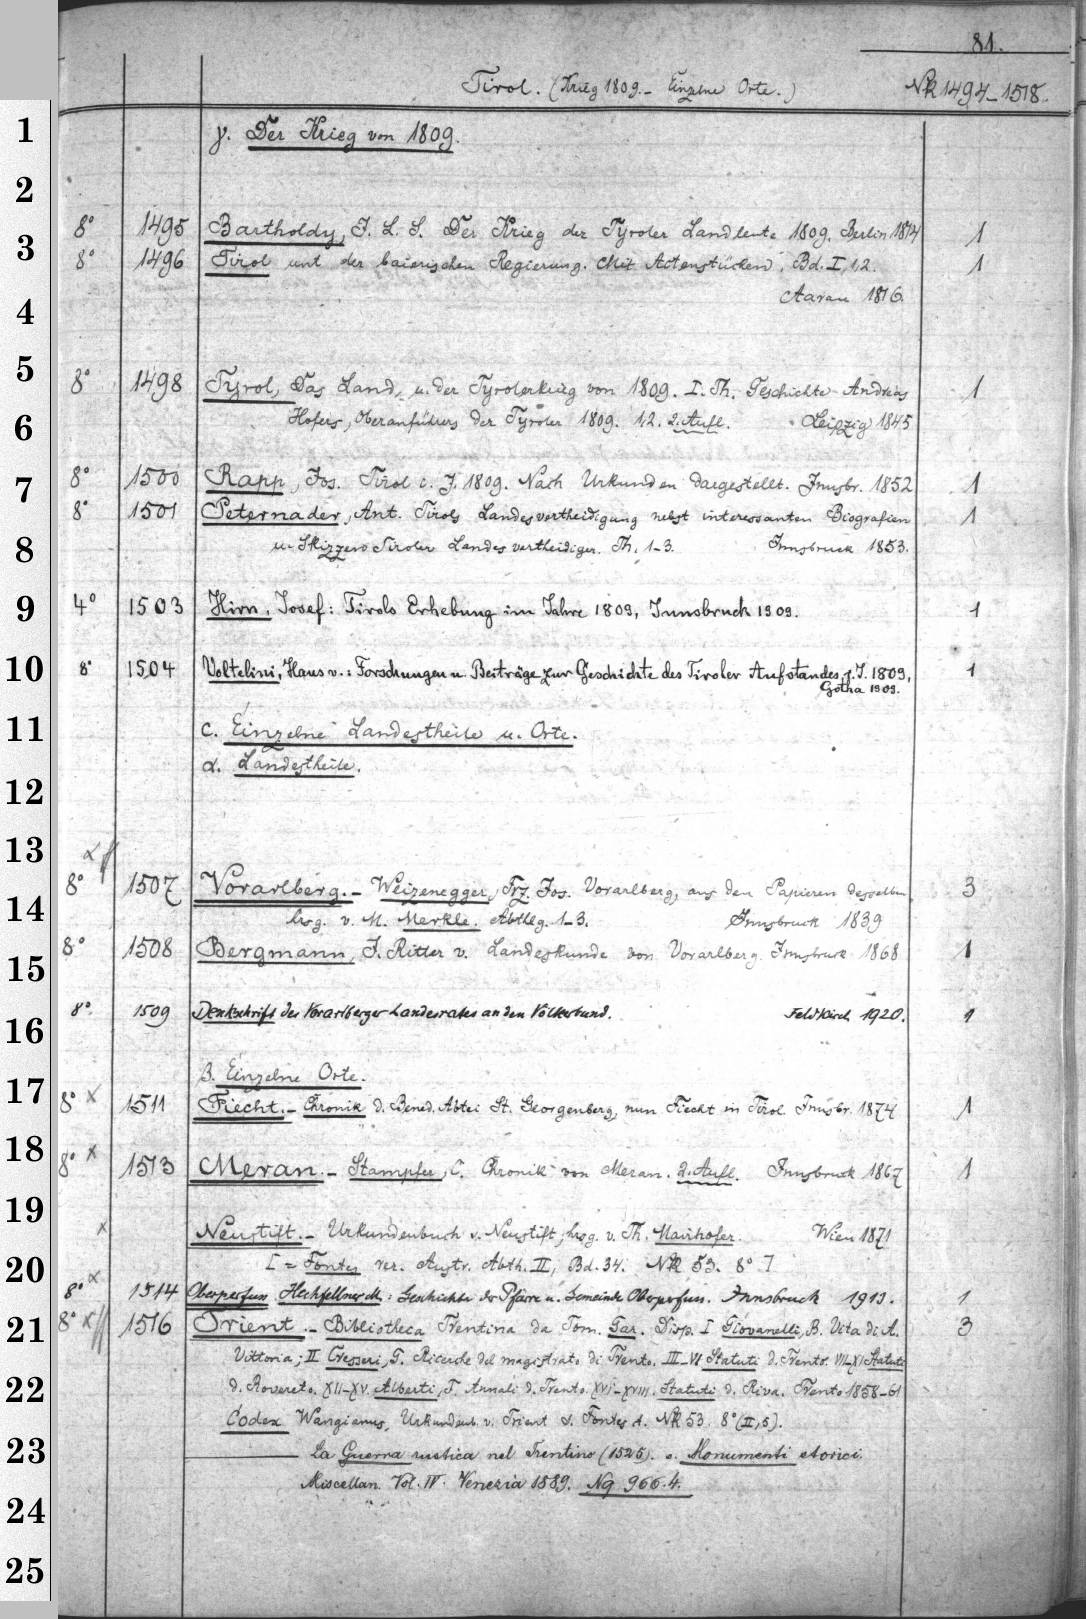 81.
Tirol. (Krieg 1809. - Einzelne Orte.) Nk 1494-1518.
1
γ. Der Krieg von 1809.
2
8° 1495 Bartholdy, J. L. S. Der Krieg der Tyroler Landleute 1809. Berlin 1814 1
3
8° 1496 Tirol unt. der baierischen Regierung. Mit Actenstücken. Bd. I, 1,2. 1
Aarau 1816.
4
5
8° 1498 Tyrol, Das Land, u. der Tyrolerkrieg von 1809. I. Th. Geschichte Andreas 1
6
Hofers, Oberanführers der Tyroler 1809. 1,2. 2. Aufl. Leipzig 1845
8° 1500 Rapp, Jos. Tirol i. J. 1809. Nach Urkunden dargestellt. Innsbr. 1852 1
7
8° 1501 Peternader, Ant. Tirols Landesvertheidigung nebst interessanten Biografien 1
8
u. Skizzen Tiroler Landesvertheidiger. Th. 1-3. Innsbruck 1853.
9
4° 1503 Hirn, Josef: Tirols Erhebung im Jahre 1809, Innsbruck 1909. 1
10
8° 1504 Voltelini, Hans v.: Forschungen u. Beiträge zur Geschichte des Tiroler Aufstandes i. J. 1809, 1
Gotha 1909.
11
c. Einzelne Landestheile u. Orte.
α. Landestheile.
12
13
8° 1507 Vorarlberg. - Weizenegger, Frz. Jos. Vorarlberg, aus den Papieren desselben 3
14
hrsg. v. M. Merkle. Abtlg. 1-3. Innsbruck 1839
8° 1508 Bergmann, J. Ritter v. Landeskunde von Vorarlberg. Innsbruck 1868 1
15
8° 1509 Denkschrift des Vorarlberger Landesrates an den Völkerbund. Feldkirch 1920. 1
16
β. Einzelne Orte.
17
8° x 1511 Fiecht. - Chronik d. Bened. Abtei St. Georgenberg, nun Fiecht in Tirol. Innsbr. 1874 1
18
8° x 1513 Meran. - Stampfer, C. Chronik von Meran. 2. Aufl. Innsbruck 1867 1
19
x Neustift. - Urkundenbuch v. Neustift, hrsg. v. Th. Mairhofer. Wien 1871
20
[= Fontes rer. Austr. Abth. II, Bd. 34. Nk 53. 8° ]
8° x 1514 Oberperfuss Hechfellner M.: Geschichte der Pfarre u. Gemeinde Oberperfuss. Innsbruck 1913. 1
21
8° x 1516 Trient. - Bibliotheca Trentina da Tom. Gar. Disp. I Giovanelli, B. Vita di A. 3
Vittoria; II Cresseri, G. Ricerche del magistrato di Trento. III-VI Statuti d. Trento. VII-XI Statuti
22
d. Rovereto. XII-XV. Alberti, F. Annali d. Trento. XVI-XVIII. Statuti d. Riva. Trento 1858-61
Codex Wangianus, Urkundenb. v. Trient s. Fontes A. Nk 53. 8° (II,5).
23
La Guerra rustica nel Trentino (1525). s. Monumenti storici.
Miscellan. Vol. IV. Venezia 1889. Ng 966.4.
24
25